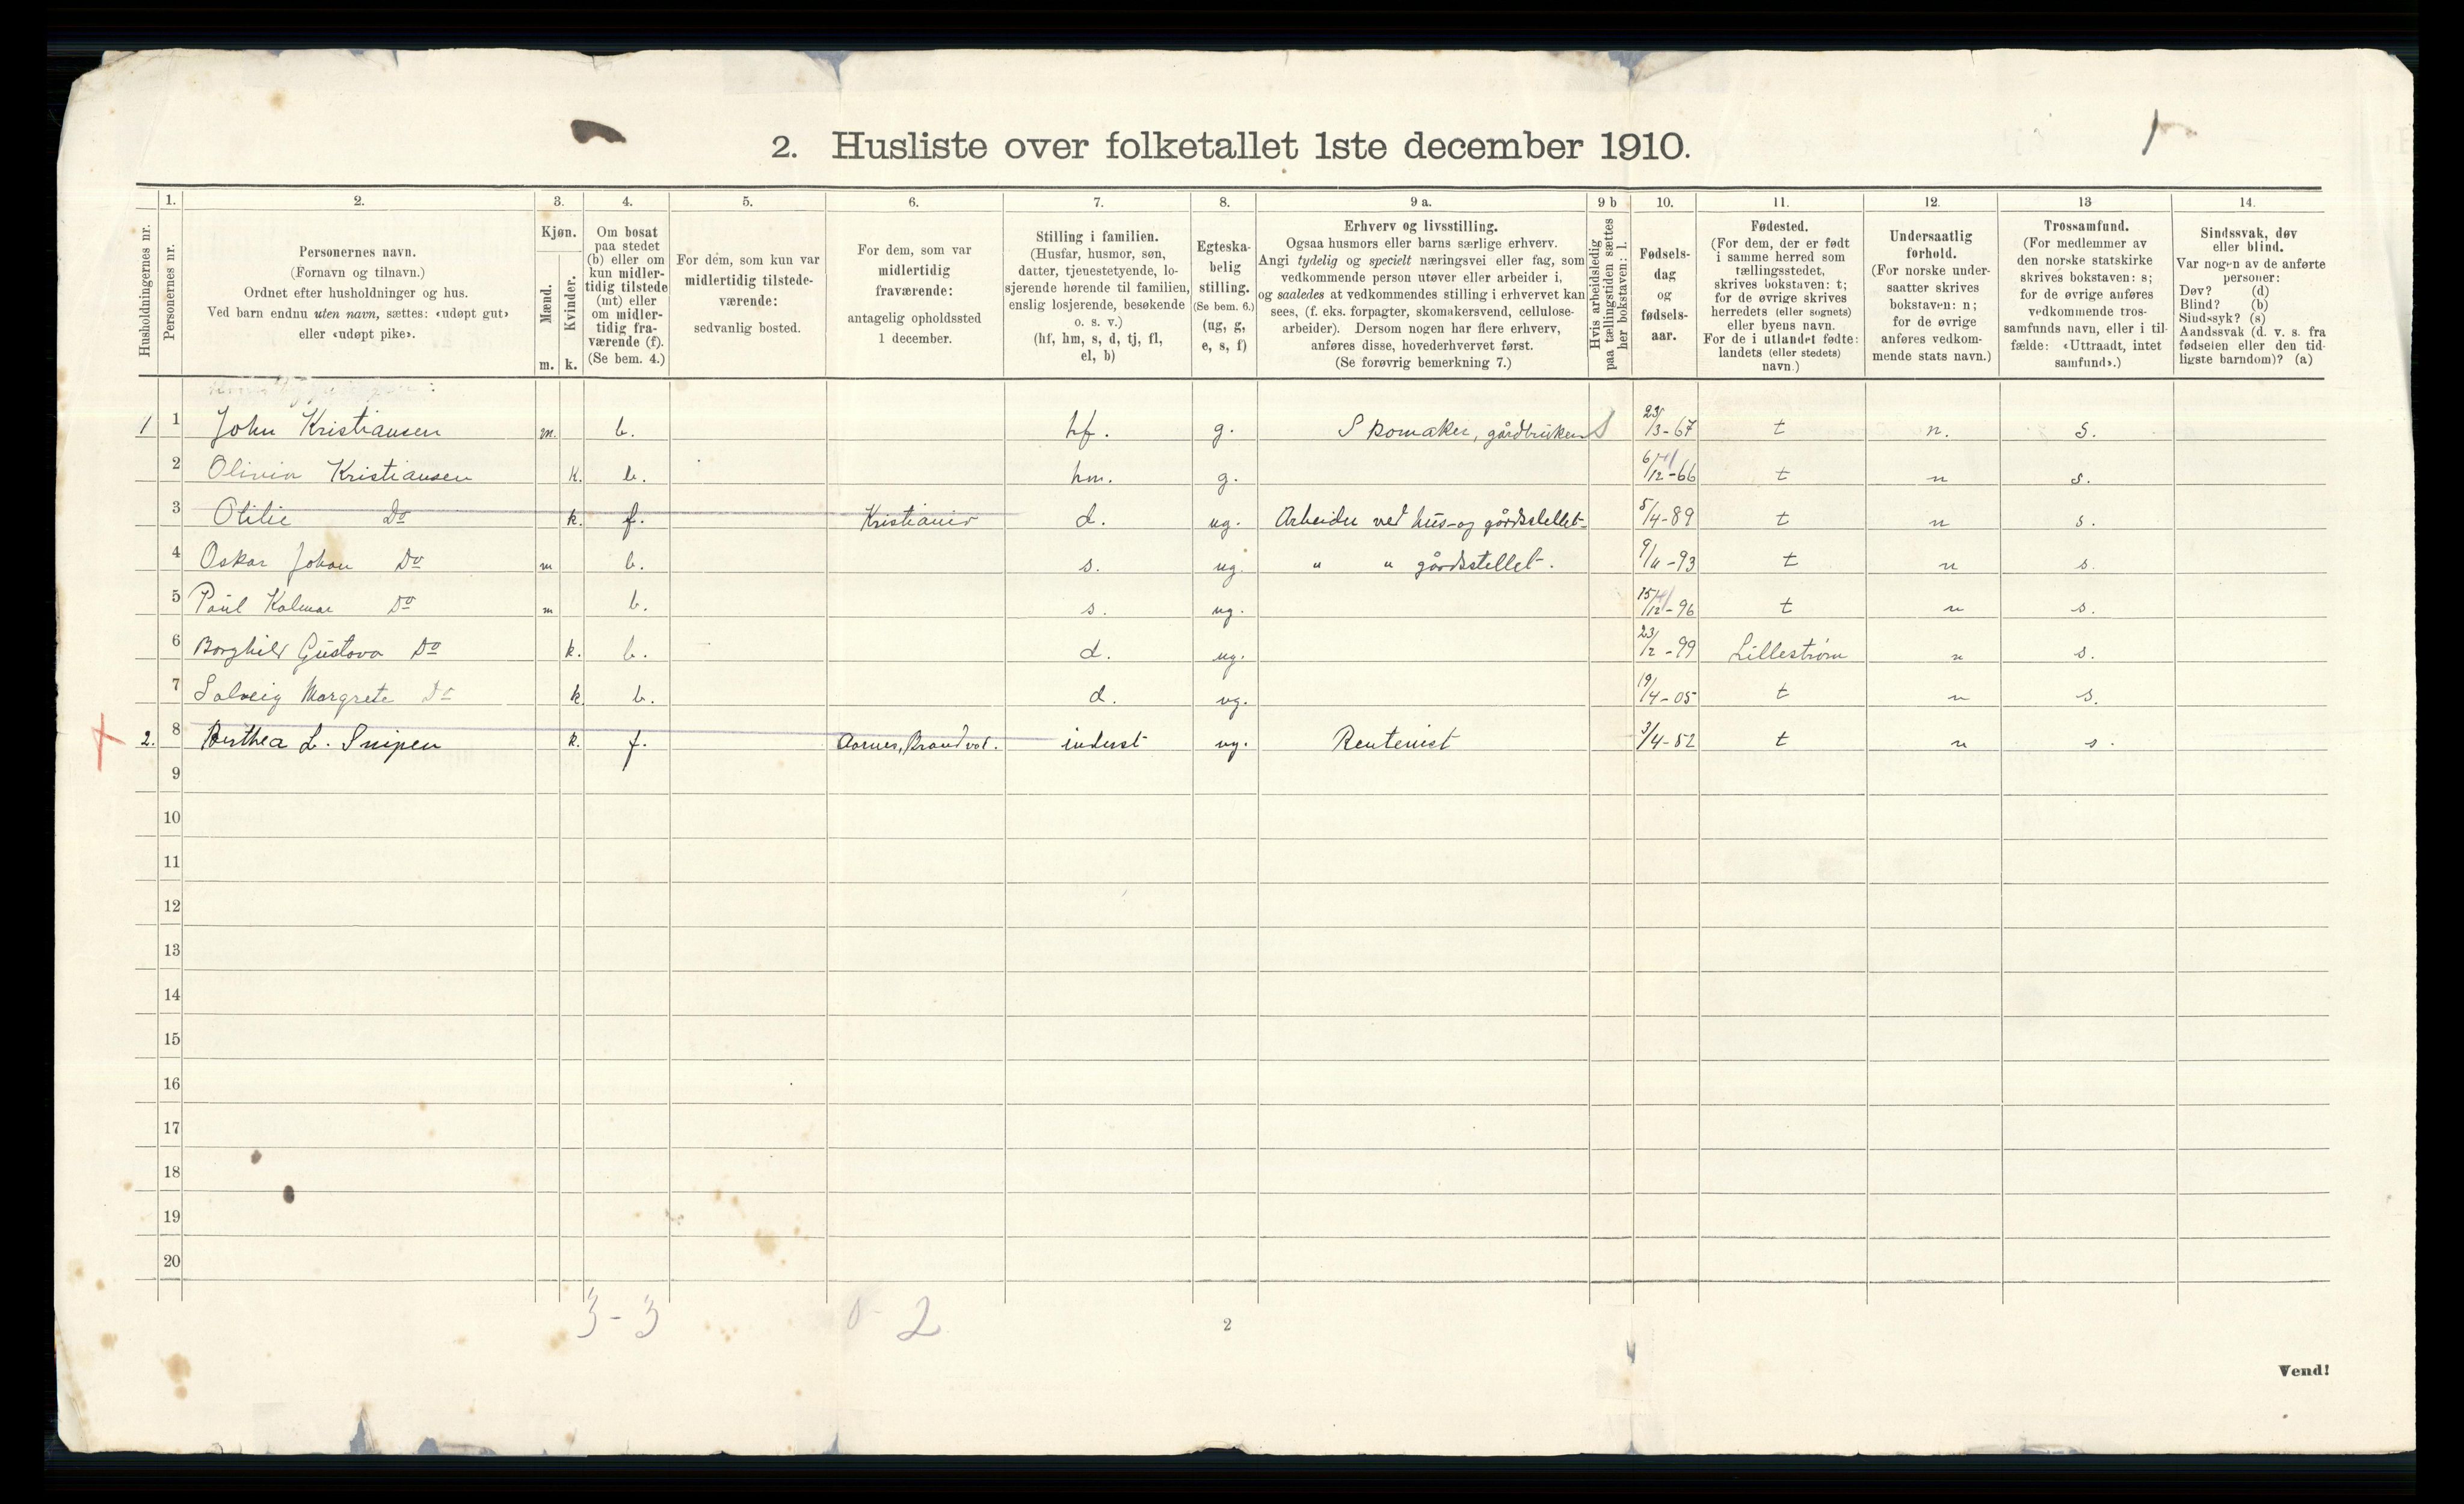 2. Husliste over folketallet 1ste december 1910.
Husholdningernes nr.
1.
Personernes nr.
2.
Personernes navn.
(Fornavn og tilnavn.)
Ordnet efter husholdninger og hus.
Ved barn endnu uten navn, sættes: «udøpt gut»
eller «udøpt pike».
3.
Kjøn.
Mænd.
Kvinder.
m. k.
4.
Om bosat
paa stedet
(b) eller om
kun midler-
tidig tilstede
(mt) eller
om midler-
tidig fra-
værende (f).
(Se bem. 4.)
5.
For dem, som kun var
midlertidig tilstede-
værende:
sedvanlig bosted.
6.
For dem, som var
midlertidig
fraværende:
antagelig opholdssted
1 december.
7.
Stilling i familien.
(Husfar, husmor, søn,
datter, tjenestetyende, lo-
sjerende hørende til familien,
enslig losjerende, besøkende
o. s. v.)
(hf, hm, s, d, tj, fl,
el, b)
8.
Egteska-
belig
stilling.
(Se bem. 6.)
(ug, g,
e, s, f)
9 a.
Erhverv og livsstilling.
Ogsaa husmors eller barns særlige erhverv.
Angi tydelig og specielt næringsvei eller fag, som
vedkommende person utøver eller arbeider i,
og saaledes at vedkommendes stilling i erhvervet kan
sees, (f. eks. forpagter, skomakersvend, cellulose-
arbeider). Dersom nogen har flere erhverv,
anføres disse, hovederhvervet først.
(Se forøvrig bemerkning 7.)
9 b
Hvis arbeidsledig
paa tællingstiden sættes
her bokstaven: l.
10.
Fødsels-
dag
og
fødsels-
aar.
11.
Fødested.
(For dem, der er født
i samme herred som
tællingsstedet,
skrives bokstaven: t;
for de øvrige skrives
herredets (eller sognets)
eller byens navn.
For de i utlandet fødte:
landets (eller stedets)
navn.)
12.
Undersaatlig
forhold.
(For norske under-
saatter skrives
bokstaven: n;
for de øvrige
anføres vedkom-
mende stats navn.)
13
Trossamfund.
(For medlemmer av
den norske statskirke
skrives bokstaven: s;
for de øvrige anføres
vedkommende tros-
samfunds navn, eller i til-
fælde: «Uttraadt, intet
samfund».)
14.
Sindssvak, døv
eller blind.
Var nogen av de anførte
personer:
Døv? (d)
Blind? (b)
Sindssyk? (s)
Aandssvak (d. v. s. fra
fødselen eller den tid-
ligste barndom)? (a)
1 1 John Kristiansen m. b. hf. g. Skomaker, gårdbruker S 23/3-67 t n. s.
2 Olivia Kristiansen k. b. hm. g. 6/12-66 t n s.
3 Otilie Do k. f. Kristiania d. ug. Arbeider ved hus- og gårdsstellet 5/4-89 t n s.
4 Oskar Johan Do m b. s. ug. " " gårdsstellet. 9/11-93 t n s.
5 Paul Kalmar Do m b. s. ug. 15/12-96 t n s.
6 Borghild Gustava Do k. b. d. ug. 23/2-99 Lillestrøm n s.
7 Solveig Margrete Do k b. d. ug. 19/4-05 t n s.
2. 8 Berthea L. Snipen k. f. Aarnes, Brandval. inderst ug. Rentenist 3/4-52 t n s.
9
10
11
12
13
14
15
16
17
18
19
20
3-3 0-2
2
Vend!